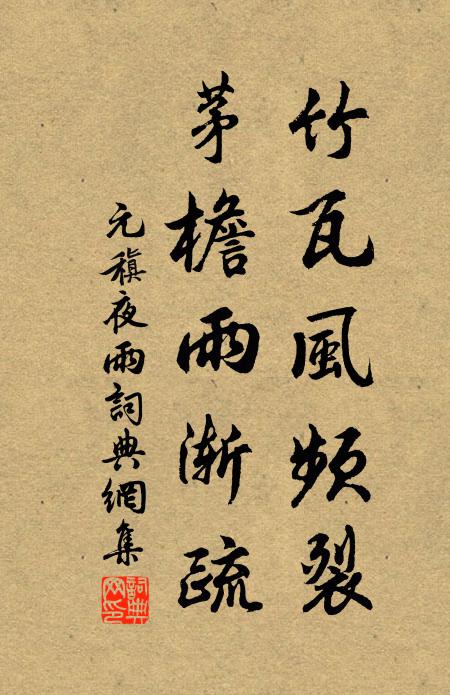 竹瓦風頻裂
茅檐雨漸疏
元稹夜雨詞典網集
詞典網印